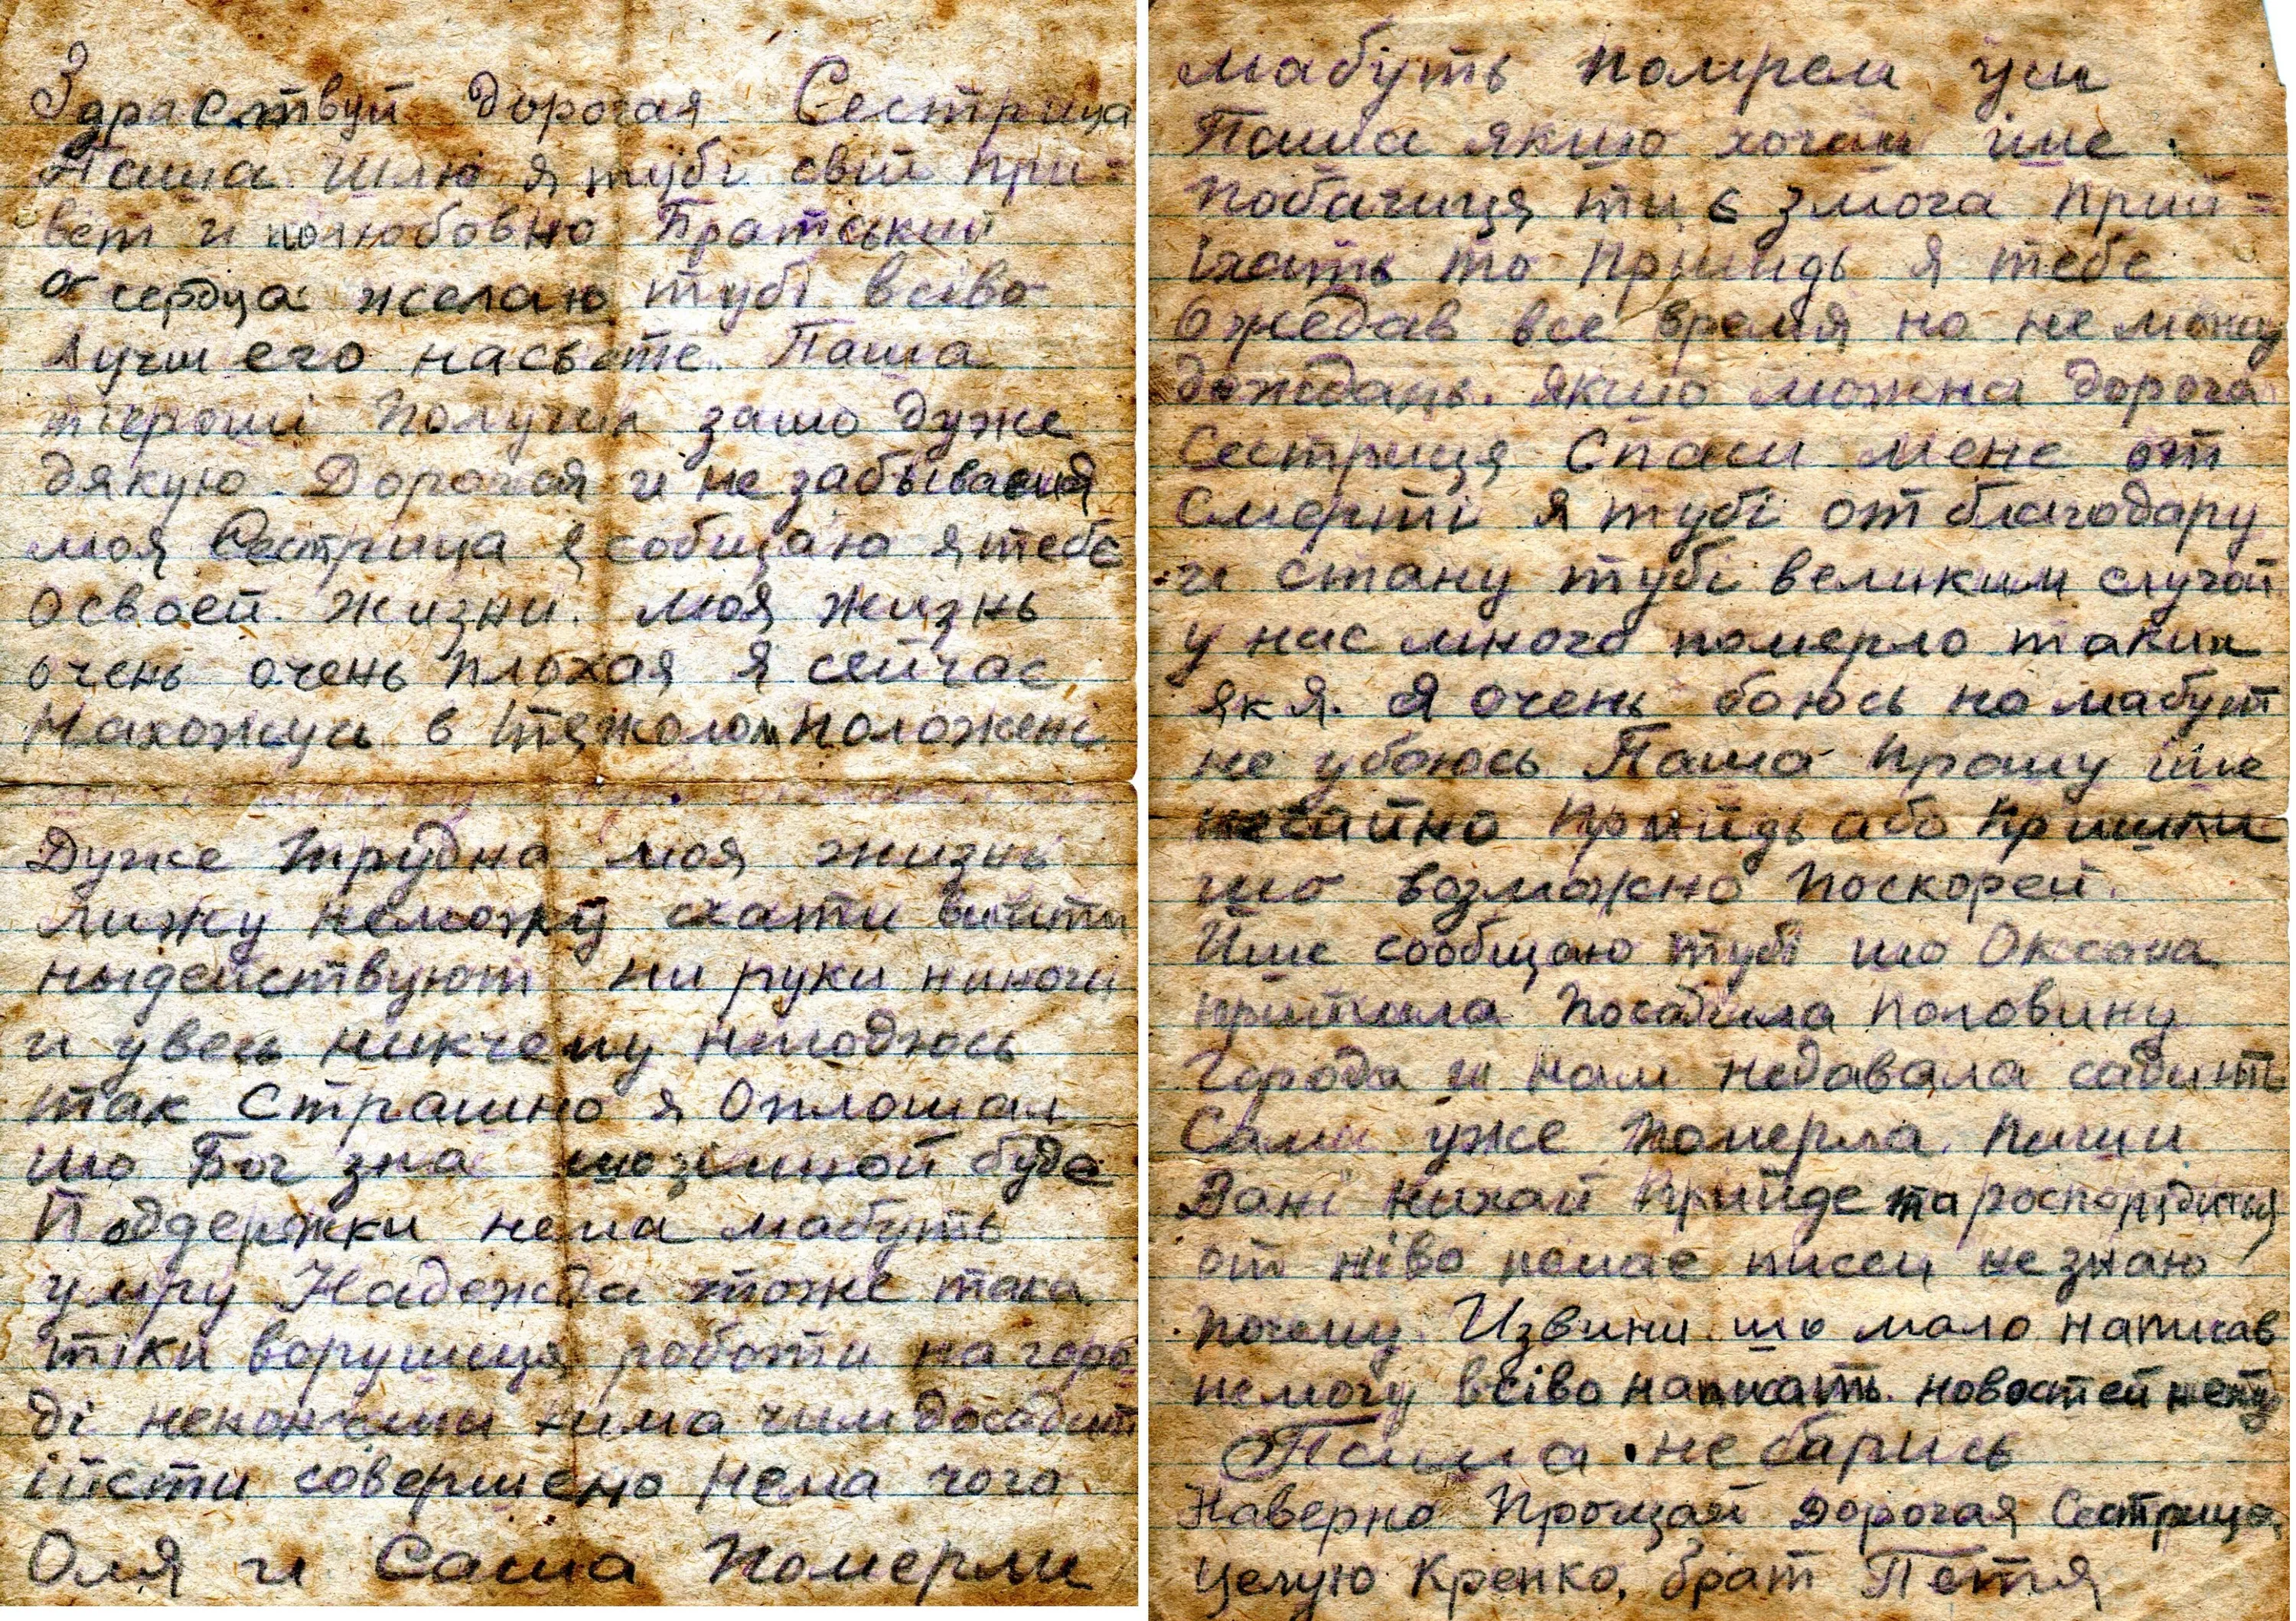 Здраствуй дорогая Сестрица
Паша шлю я тубі свій при=
вет и полюбовно Братський
от сердца желаю тубі всіво
лучшего насвете. Паша
тігроші получил зашо дуже
дякую. Дорогая и не забываемая
моя Сестрица я собщаю я тебе
освоей жизни. моя жизнь
очень очень плохая я сейчас
Нахожусь в тяжолом положені
Дуже трудна моя жизнь
лижу неможу схати вийти
ныдействуют ни руки ниноги
и увесь никчему нигоджюсь
так Страшно я Оплошал
шо Бог зна шозімной буде
Поддержки нема мабуть
умру Надежда тоже така
тіки ворушиця роботи нагоро
ді неконченни нима чим досадит
іїсти совершено нема чого
Оля и Саша Померли
мабуть помрем уси
Паша якшо хочиш іще
побачиця ти є змога прий=
їхать то прыйидь я тебе
Ожедав все время но не можу
дождаць. якшо можна дорога
Сестриця Спаси мене от
Смерті я тубі отблагодару
и стану тубі великим случай
у нас много померло таких
як я. я очень боюсь но мабут
не убоюсь Паша прошу іще
нечайно прыйидь або пришли
шо возможно поскорей.
Йше сообщаю тубі шо Оксана
прийшла посадила половину
Города и нам недавала садить
Сама уже померла. пиши
Вані нихай прийде та роспорядиця
от ніво немає писем не знаю
почему. Извини шо мало написав
немогу всіво написать. новостей нету
Паша не барись
Наверно Прощай Дорогая Сестрица
целую Крепко, брат Петя